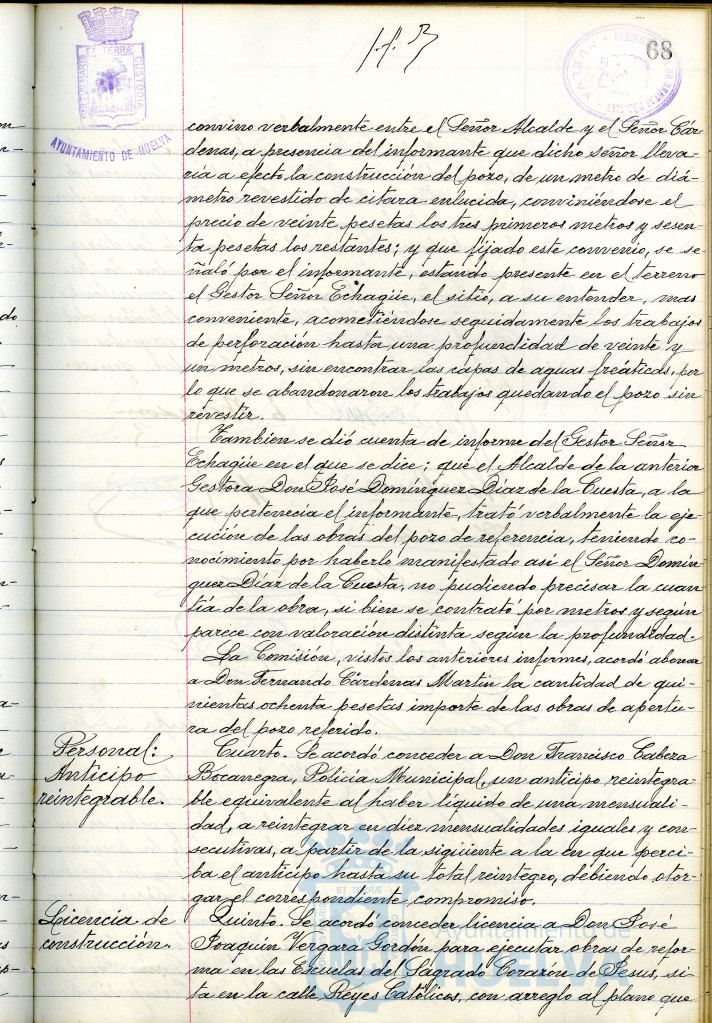 68
AYUNTAMIENTO DE HUELVA
convino verbalmente entre el Señor Alcalde y el Señor Cár-
denas, a presencia del informante que dicho señor lleva-
ria a efecto la construcción del pozo, de un metro de diá-
metro revestido de citara enlucida, conviniéndose el
precio de veinte pesetas los tres primeros metros y sesen-
ta pesetas los restantes; y que fijado este convenio, se se-
ñaló por el informante, estando presente en el terreno
el Gestor Señor Echagüe, el sitio, a su entender, mas
conveniente, acometiéndose seguidamente los trabajos
de perforación hasta una profundidad de veinte y
un metros, sin encontrar las capas de aguas freáticas, por
lo que se abandonaron los trabajos quedando el pozo sin
revestir.
Tambien se dió cuenta de informe del Gestor Señor
Echagüe en el que se dice; que el Alcalde de la anterior
Gestora Don José Domínguez Díaz de la Cuesta, a la
que pertenecia el informante, trató verbalmente la eje-
cución de las obras del pozo de referencia, teniendo co-
nocimiento por haberlo manifestado asi el Señor Domín-
guez Díaz de la Cuesta, no pudiendo precisar la cuan-
tía de la obra, si bien se contrató por metros y según
parece con valoración distinta según la profundidad.
La Comisión, vistos los anteriores informes, acordó abonar
a Don Fernando Cárdenas Martín la cantidad de qui-
nientas ochenta pesetas importe de las obras de apertu-
ra del pozo referido.
Personal:
Anticipo
reintegrable.
Cuarto. Se acordó conceder a Don Francisco Cabeza
Bocanegra, Policía Municipal, un anticipo reintegra-
ble equivalente al haber líquido de una mensuali-
dad, a reintegrar en diez mensualidades iguales y con-
secutivas, a partir de la siguiente a la en que perci-
ba el anticipo hasta su total reintegro, debiendo otor-
gar el correspondiente compromiso.
Licencia de
construcción.
Quinto. Se acordó conceder licencia a Don José
Joaquín Vergara Gordón para ejecutar obras de refor-
ma en las Escuelas del Sagrado Corazón de Jesus, si-
ta en la calle Reyes Católicos, con arreglo al plano que
Ayuntamiento de
HUELVA